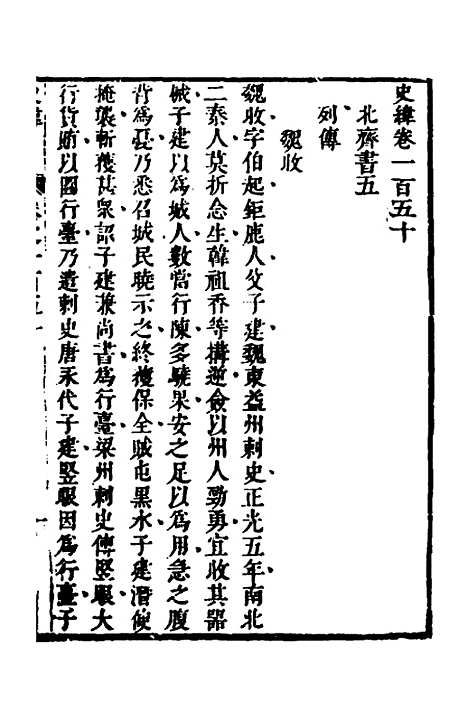 史緯卷一百五十
北齊書五
列傳
魏收
魏收字伯起鉅鹿人父子建魏東益州刺史正光五年南北
二秦人莫折念生韓祖香等搆逆僉以州人勁勇宜收其器
械子建以爲城人數當行陳多驍果安之足以爲用急之腹
背爲憂乃悉召城民曉示之終獲保全賊屯黑水子建潛使
掩襲斬獲甚衆詔子建兼尚書爲行臺梁州刺史傅竪眼大
行貨賄以圖行臺乃遣刺史唐永代子建竪眼因爲行臺子